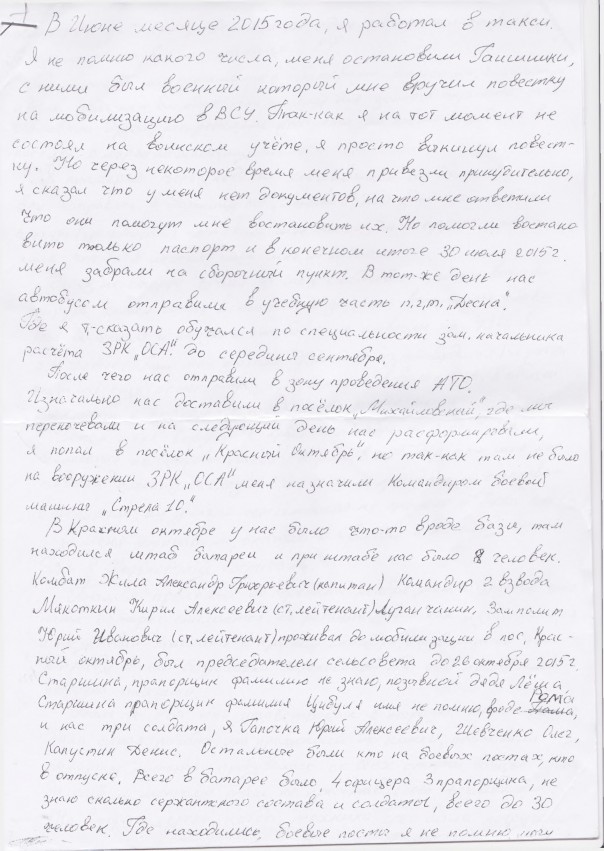 1
В Июне месяце 2015 года, я работал в такси.
Я не помню какого числа, меня остановили Гаишники,
с ними был военный который мне вручил повестку
на мобилизацию в ВСУ. Так-как я на тот момент не
состоял на воинском учёте, я просто выкинул повест-
ку. Но через некоторое время меня привезли принудительно,
я сказал что у меня нет документов, на что мне ответили
что они помогут мне востановить их. Но помогли востано
вить только паспорт и в конечном итоге 30 июля 2015 г.
меня забрали на сборочный пункт. В тот-же день нас
автобусом отправили в учебную часть п.г.т. „Десна".
Где я т,-сказать обучался по специальности зам. начальника
расчёта ЗРК „ОСА". до середины сентября.
После чего нас отправили в зону проведения АТО.
Изначально нас доставили в посёлок „Михайловский", где мы
переночевали и на следующий день нас расформировали,
я попал в посёлок „Красный Октябрь", но так-как там не было
на вооружении ЗРК „ОСА" меня назначили Командиром боевой
машины „Стрела 10."
В Красном октябре у нас было что-то вроде базы, там
находился штаб батареи и при штабе нас было 8 человек.
Комбат Жила Александр Григорьевич (капитан) Командир 2 взвода
Мякоткин Кирил Алексеевич (ст. лейтенант) Луганчанин, Замполит
Юрий Иванович (ст. лейтенант) проживал до мобилизации в пос, Крас-
ный октябрь, был председателем сельсовета до 26 октября 2015 г.
Старшина, прапорщик фамилию не знаю, позывной дядя Лёша
Старшина прапорщик фамилия Цибуля имя не помню, вроде Рома,
и нас три солдата, я Гапочка Юрий Алексеевич, Шевченко Олег,
Капустин Денис. Остальные были кто на боевых постах, кто
в отпуске. Всего в батарее было, 4 офицера 3 прапорщика, не
знаю сколько сержантского состава и солдатов, всего до 30
человек. Где находились, боевые посты я не помню